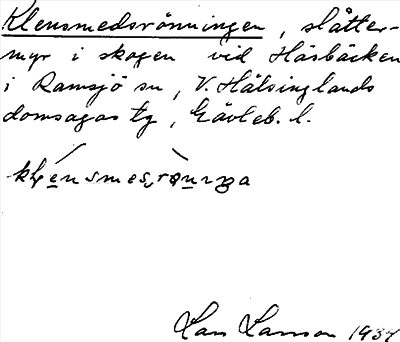 Klensmedsrönningen, slåtter-
myr i skogen vid Häsbäcken
i Ramsjö sn, V. Hälsinglands
domsagas tg, Gävleb. l.
Lars Larsson 1937